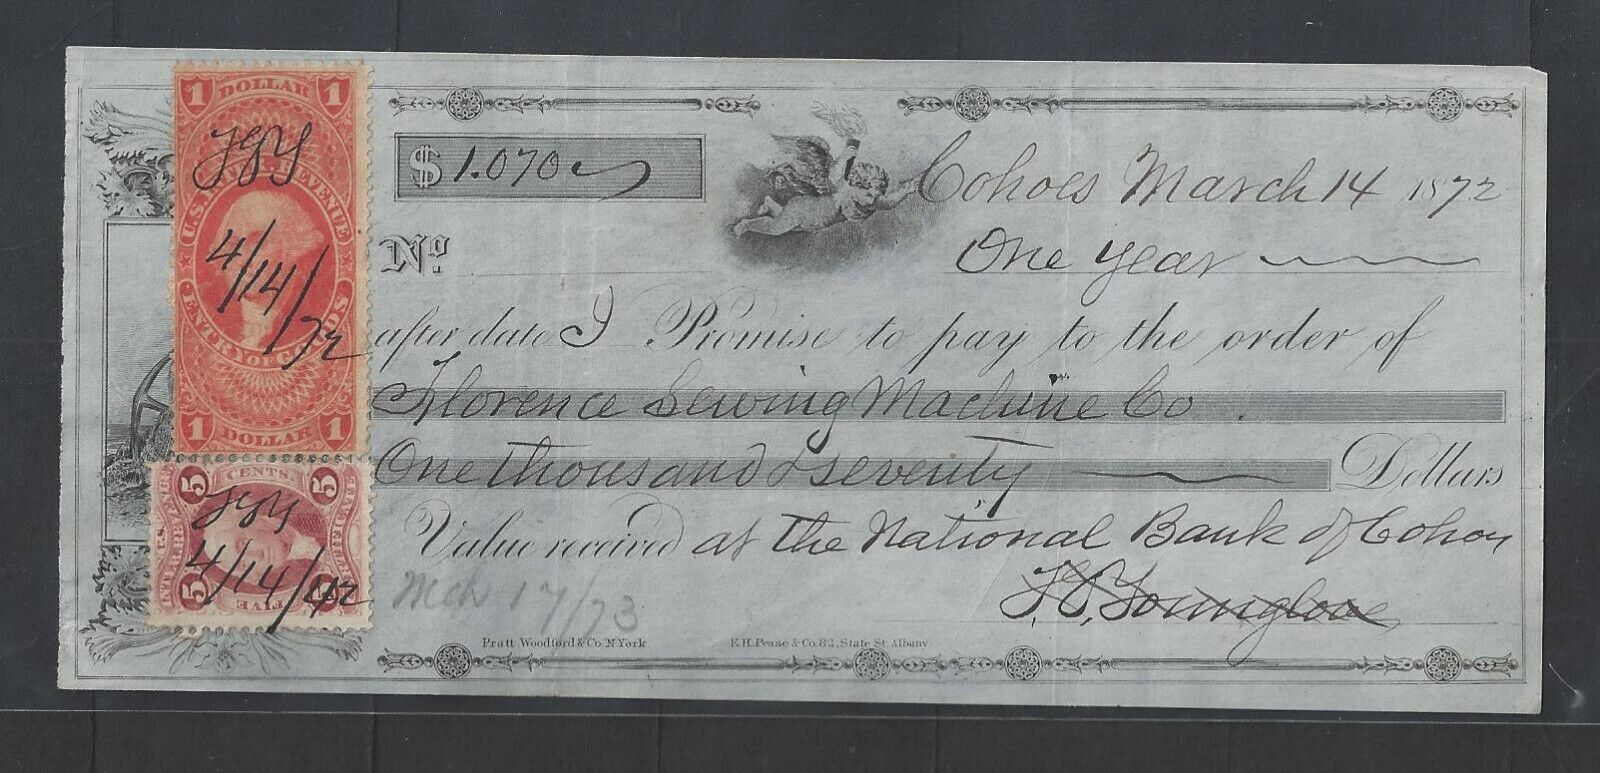 1 DOLLAR 1
U.S. INTER. REVENUE
ENTRY OF GOODS
1 DOLLAR 1
4/14/72
5 CENTS 5
U.S.
CERTIFICATE
5 FIVE 5
4/14/72
$ 1.070
Cohoes March 14 1872
No.
One year
after date I Promise to pay to the order of
Florence Sewing Machine Co.
One thousand & seventy Dollars
Value received at the National Bank of Cohoes
Mch 17/73
Younglove
Pratt Woodford & Co. N. York
E.H. Pease & Co. 82, State St. Albany